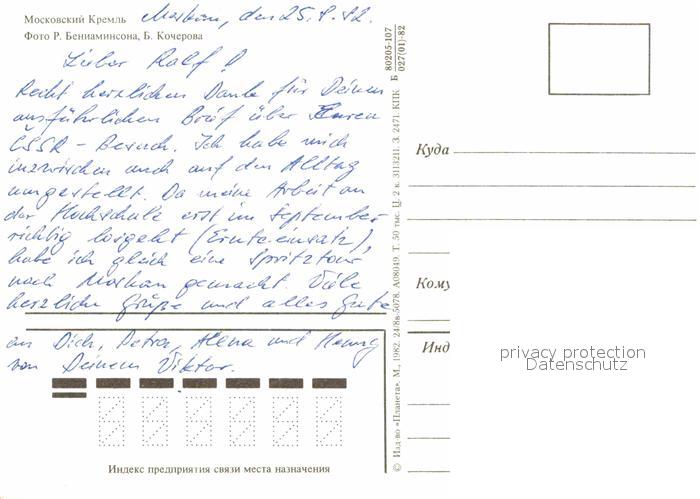 Московский Кремль
Фото Р. Бениаминсона, Б. Кочерова
Moskau, den 25.8.82.
Lieber Ralf!
Recht herzlichen Dank für Deinen
ausführlichen Brief über Euren
ČSSR-Besuch. Ich habe mich
inzwischen auch auf den Alltag
umgestellt. Da meine Arbeit an
der Hochschule erst im September
richtig losgeht (Ernteeinsatz),
habe ich gleich eine Spritztour
nach Moskau gemacht. Viele
herzliche Grüße und alles Gute
an Dich, Petra, Alena und
von Deinem Viktor.
Индекс предприятия связи места назначения
© Изд-во «Планета». М., 1982. 24/8в-5078. А08049. Т. 50 тыс. Ц. 2 к. 3113211. З. 2471. КПК
Б 80205-107 027(01)-82
Куда
Кому
Инд
privacy protection
Datenschutz